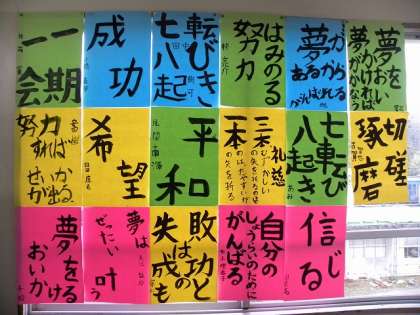 一期
一会
成功
七転び
八起き
努力
はみのる
夢が
あるから
がんばれる
夢をおい
かければ
夢がかなう
努力
すれば
せいか
が出る
希望
平和
一本
三本
七転び
八起き
切磋
琢磨
夢を
おいかける
夢は
ぜったい
叶う
失敗は
成功のもと
自分の
しょうらいのために
がんばる
信じる